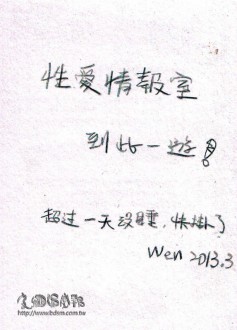 性愛情報室
到此一遊!
超过一天没睡，快掛了
Wen 2013.3
http://www.bdsm.com.tw